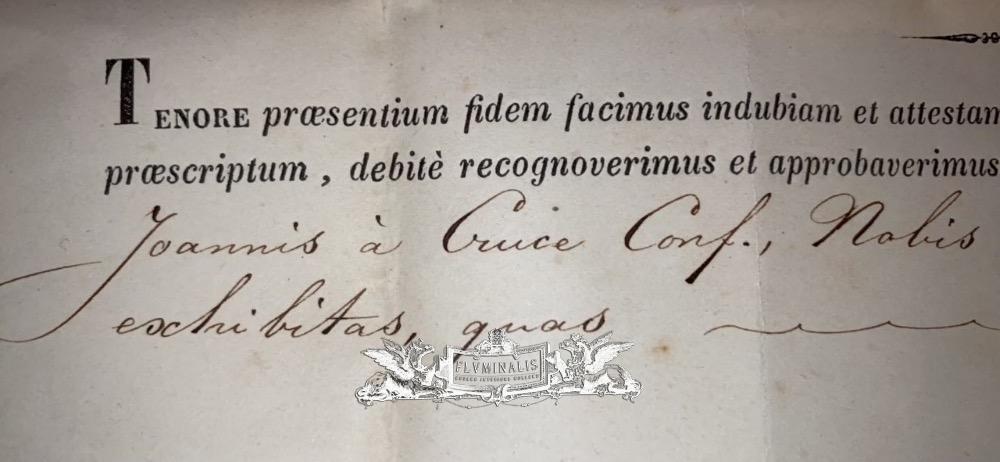 TENORE præsentium fidem facimus indubiam et attestam
præscriptum, debitè recognoverimus et approbaverimus
Joannis à Cruce Conf., Nobis
exhibitas, quas
FLVMINALIS